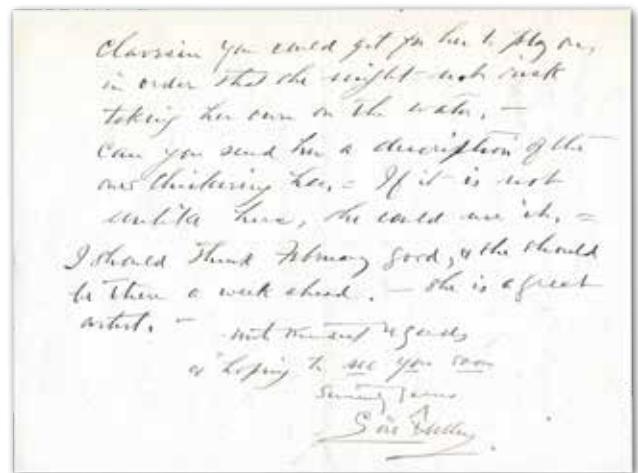 clavecin you could get for her to play on,
in order that she might not risk
taking her own on the water. –
Can you send her a description of the
one Chickering has. = If it is not
unlike hers, she could use it. =
I should think February good, & she should
be there a week ahead. – She is a great
artist. –
with kindest regards
& hoping to see you soon
Sincerely yours